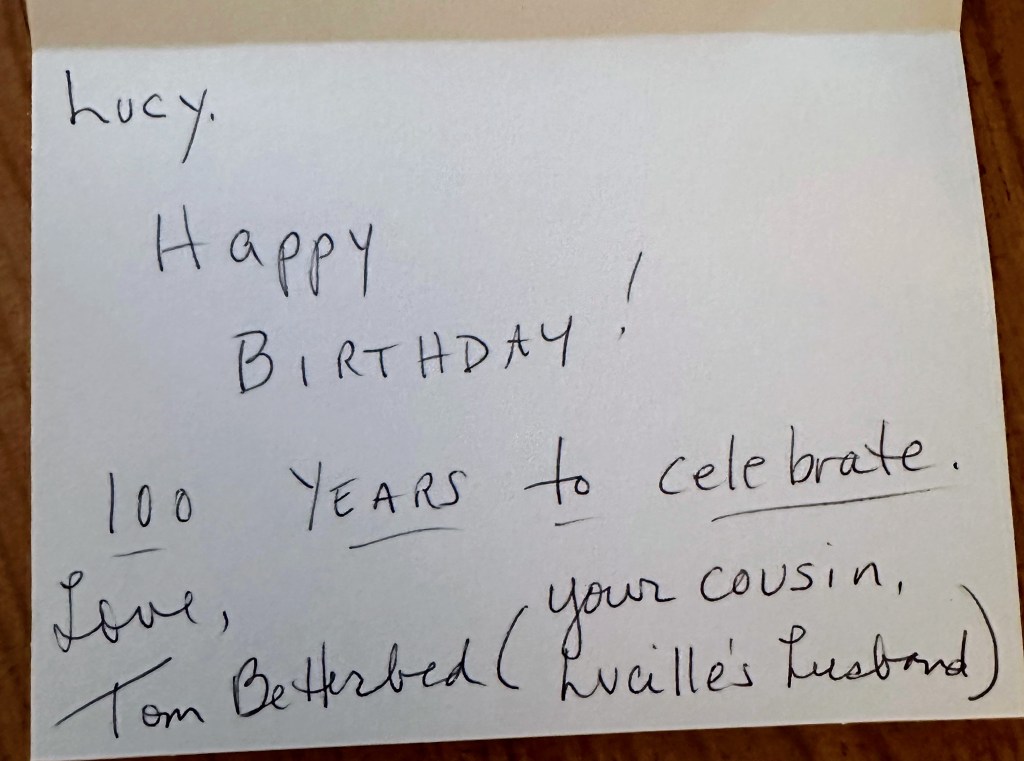 Lucy.
Happy
BIRTHDAY!
100 YEARS to celebrate.
Love,
Tom Betterbed (your cousin,
Lucille's husband)